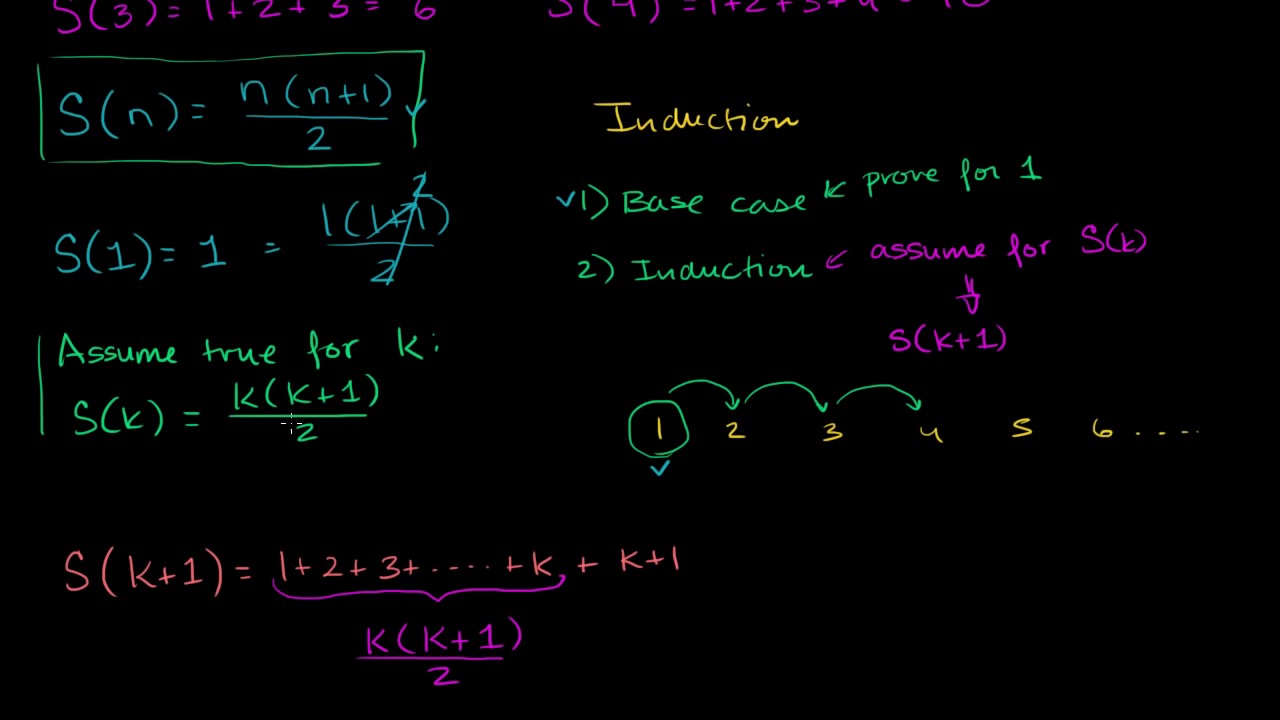 S(3) = 1+2+3 = 6
S(4) = 1+2+3+4 = 10
S(n) = n(n+1)/2
Induction
1) Base case ← prove for 1
S(1) = 1 = 1(1+1)/2 2
2) Induction ← assume for S(k)
⇓
S(k+1)
Assume true for k:
S(k) = k(k+1)/2
1 2 3 4 5 6 ....
S(k+1) = 1+2+3+.....+k + k+1
k(k+1)/2